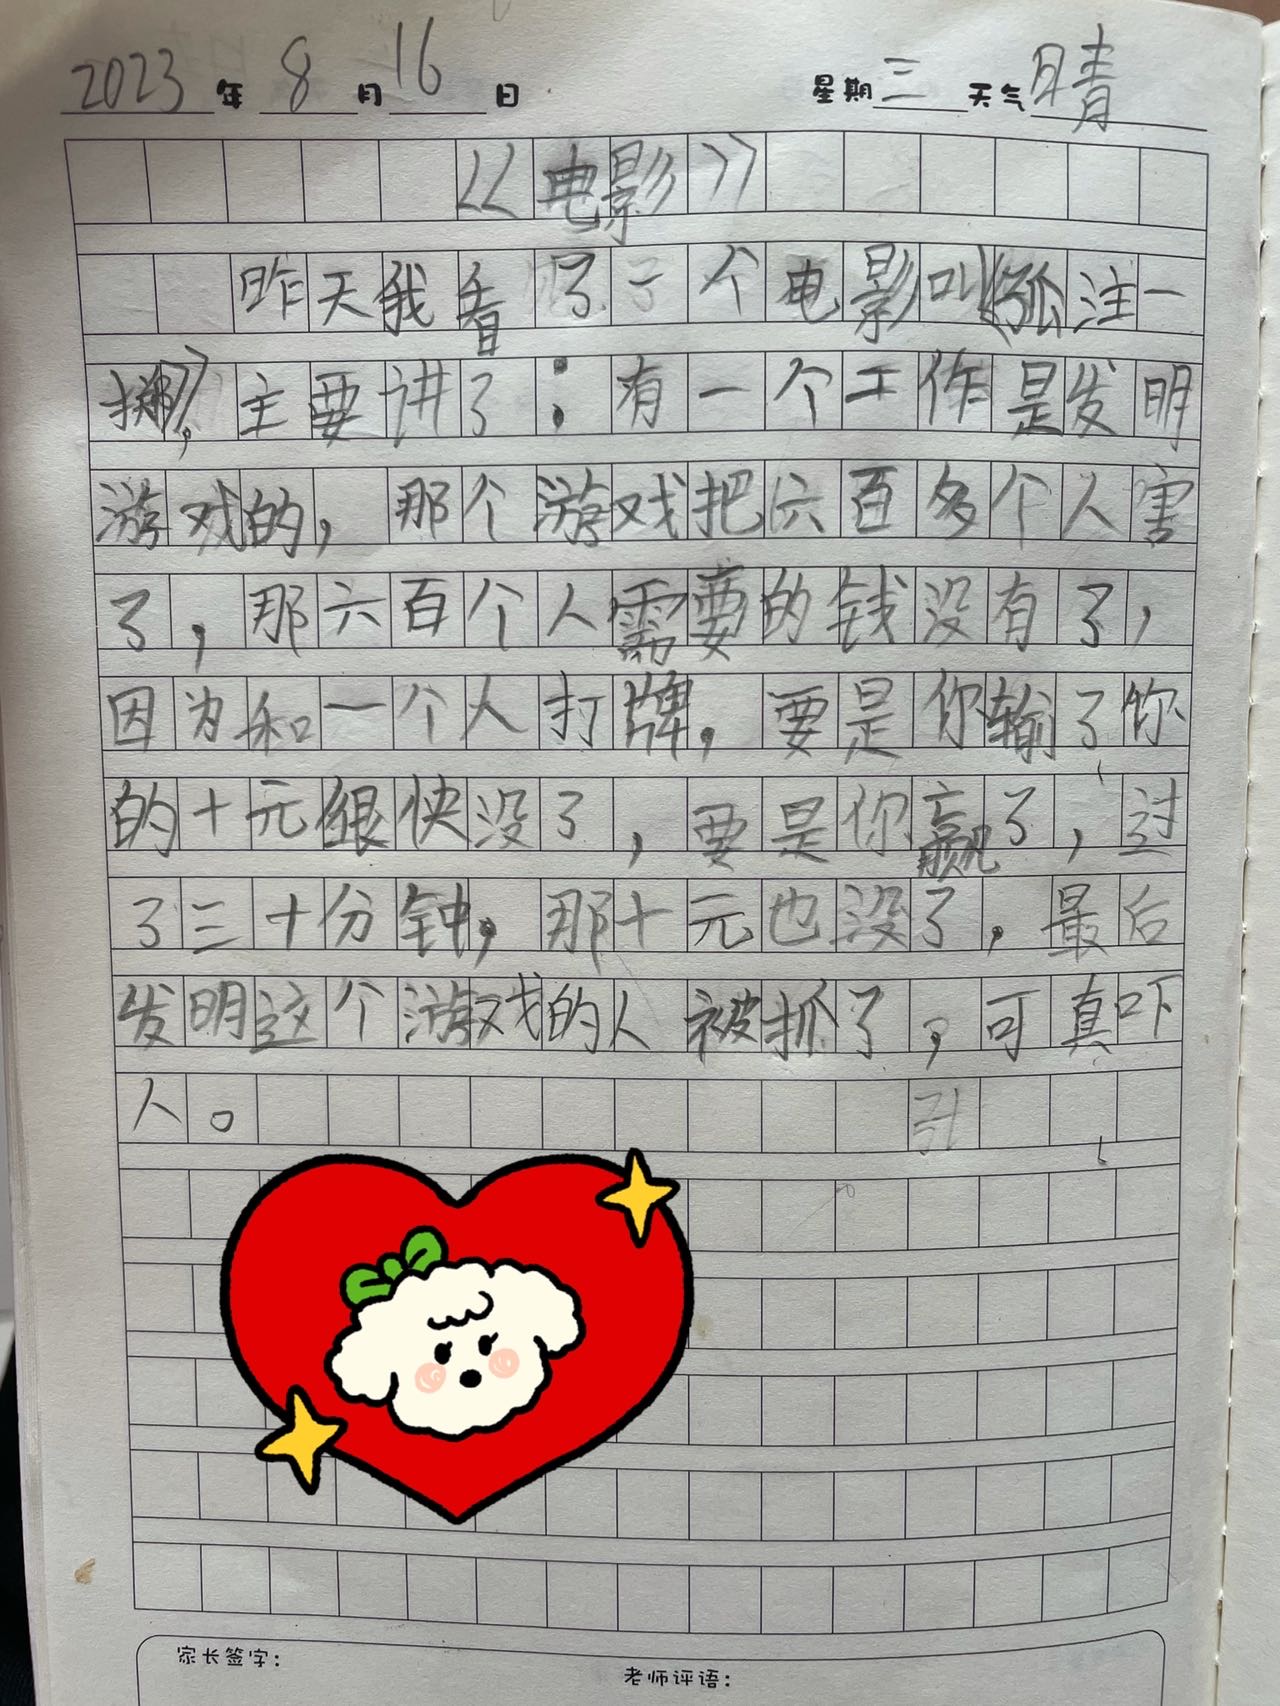 2023年8月16日 星期三 天气 晴
《电影》
昨天我看了一个电影叫《孤注一
掷》,主要讲了：有一个工作是发明
游戏的，那个游戏把六百多个人害
了，那六百个人需要的钱没有了，
因为和一个人打牌，要是你输了你
的十元很快没了，要是你赢了，过
了三十分钟，那十元也没了，最后
发明这个游戏的人被抓了，可真吓
人。
家长签字：
老师评语：